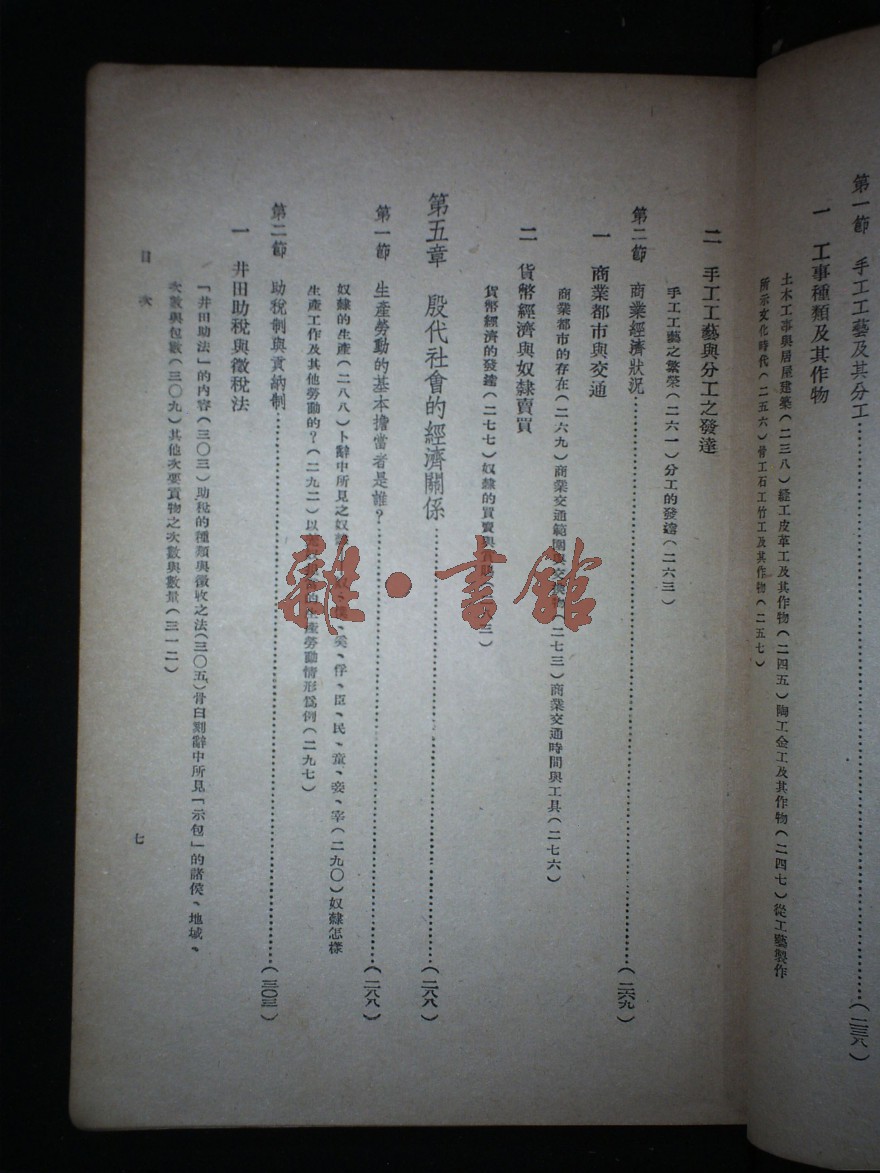 第一節　手工工藝及其分工……………………（二三八）
一　工事種類及其作物
土木工事與居屋建築（二三八）縫工皮革工及其作物（二四五）陶工金工及其作物（二四七）從工藝製作
所示文化時代（二五六）骨工石工竹工及其作物（二五七）
二　手工工藝與分工之發達
手工工藝之繁榮（二六一）分工的發達（二六三）
第二節　商業經濟狀況……………………（二六九）
一　商業都市與交通
商業都市的存在（二六九）商業交通範圍與交（二七三）商業交通時間與工具（二七六）
二　貨幣經濟與奴隸賣買
貨幣經濟的發達（二七七）奴隸的買賣與
第五章　殷代社會的經濟關係……………………（二八八）
第一節　生產勞動的基本擔當者是誰？……………………（二八八）
奴隸的生產（二八八）卜辭中所見之奴隸、奚、俘、臣、民、童、妾、宰（二九〇）奴隸怎樣
生產工作及其他勞動的？（二九二）以的生產勞動情形爲例（二九七）
第二節　助稅制與貢納制……………………（三〇三）
一　井田助稅與徵稅法
「井田助法」的內容（三〇三）助稅的種類與徵收之法（三〇五）骨臼刻辭中所見「示包」的諸侯、地域、
次數與包數（三〇九）其他次要貢物之次數與數量（三一二）
目次
七
雜·書館